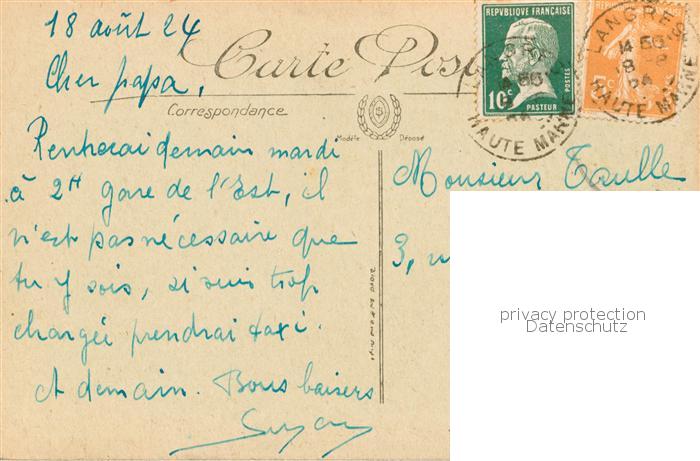 18 août 24
Cher papa,
Carte Postale
Correspondance
Modèle Déposé
Rentrerai demain mardi
à 2H gare de l'Est, il
n'est pas nécessaire que
tu y sois, si suis trop
chargée prendrai taxi.
A demain. Bons baisers
Suzon
REPVBLIQVE FRANÇAISE
10c
POSTES
PASTEUR
LANGRES
HAUTE MARNE
5c
LANGRES
14 50
8
24
HAUTE MARNE
Monsieur Taulle
3,
privacy protection
Datenschutz